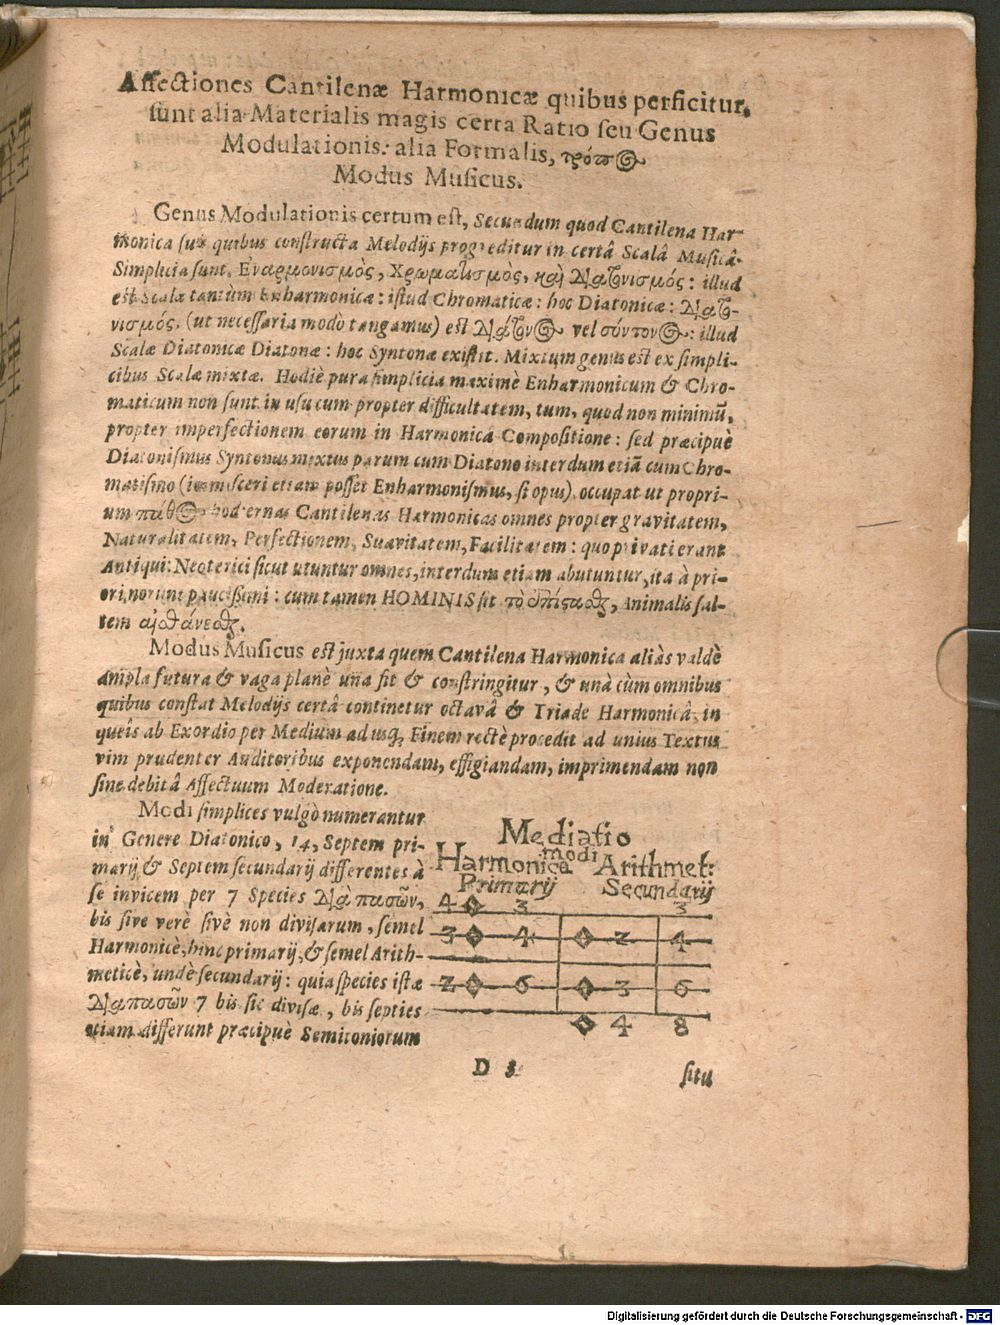 Affectiones Cantilenæ Harmonicæ quibus perficitur,
sunt alia Materialis magis certa Ratio seu Genus
Modulationis: alia Formalis, τρόπος
Modus Musicus.
Genus Modulationis certum est, Secundum quod Cantilena Har-
monica suis quibus constructa Melodijs progreditur in certâ Scalâ Musicâ.
Simplicia sunt, Εναρμονισμὸς, Χρωματισμος, καὶ Διατονισμός: illud
est Scalæ tantùm Enharmonicæ: istud Chromaticæ: hoc Diatonicæ: Διατο-
νισμός, (ut necessaria modò tangamus) est Διάτονος vel σύντονος: illud
Scalæ Diatonicæ Diatonæ: hoc Syntonæ existit. Mixtum genus est ex simpli-
cibus Scalæ mixtæ. Hodiè pura simplicia maximè Enharmonicum & Chro-
maticum non sunt in usu cum propter difficultatem, tum, quod non minimũ,
propter imperfectionem eorum in Harmonicâ Compositione: sed præcipuè
Diatonismus Syntonus mixtus parum cum Diatono interdum etiã cum Chro-
matismo (immisceri etiam posset Enharmonismus, si opus) occupat ut propri-
um πάθος hodiernas Cantilenas Harmonicas omnes propter gravitatem,
Naturalitatem, Perfectionem, Suavitatem, Facilitatem: quo privati erant
Antiqui: Neoterici sicut utuntur omnes, interdum etiam abutuntur, ita à pri-
ori norunt paucissimi: cum tamen HOMINIS sit τὸ ἐπίσταθζ, Animalis sal-
tem αἰσθάνεσθζ.
Modus Musicus est juxta quem Cantilena Harmonica aliàs valdè
ampla futura & vaga planè una fit & constringitur, & unà cùm omnibus
quibus constat Melodijs certâ continetur octavâ & Triade Harmonicâ, in
queis ab Exordio per Medium ad usq; Finem rectè procedit ad unius Textus
vim prudenter Auditoribus exponendam, effigiandam, imprimendam non
sine debitâ Affectuum Moderatione.
Modi simplices vulgò numerantur
in Genere Diatonico, 14, Septem pri-
marij & Septem secundarij differentes à
se invicem per 7 Species Διὰ πασῶν,
bis sive verè sivè non divisarum, semel
Harmonicè, hinc primarij, & semel Arith-
meticè, undè secundarij: quia species istæ
Διαπασῶν 7 bis sic divisæ, bis septies
etiam differunt præcipuè Semitoniorum
Mediatio
Harmonica modi Arithmet:
Primarij Secundarij
4 3 3
3 4 2 4
2 6 3 6
4 8
D 3
situ
Digitalisierung gefördert durch die Deutsche Forschungsgemeinschaft - DFG